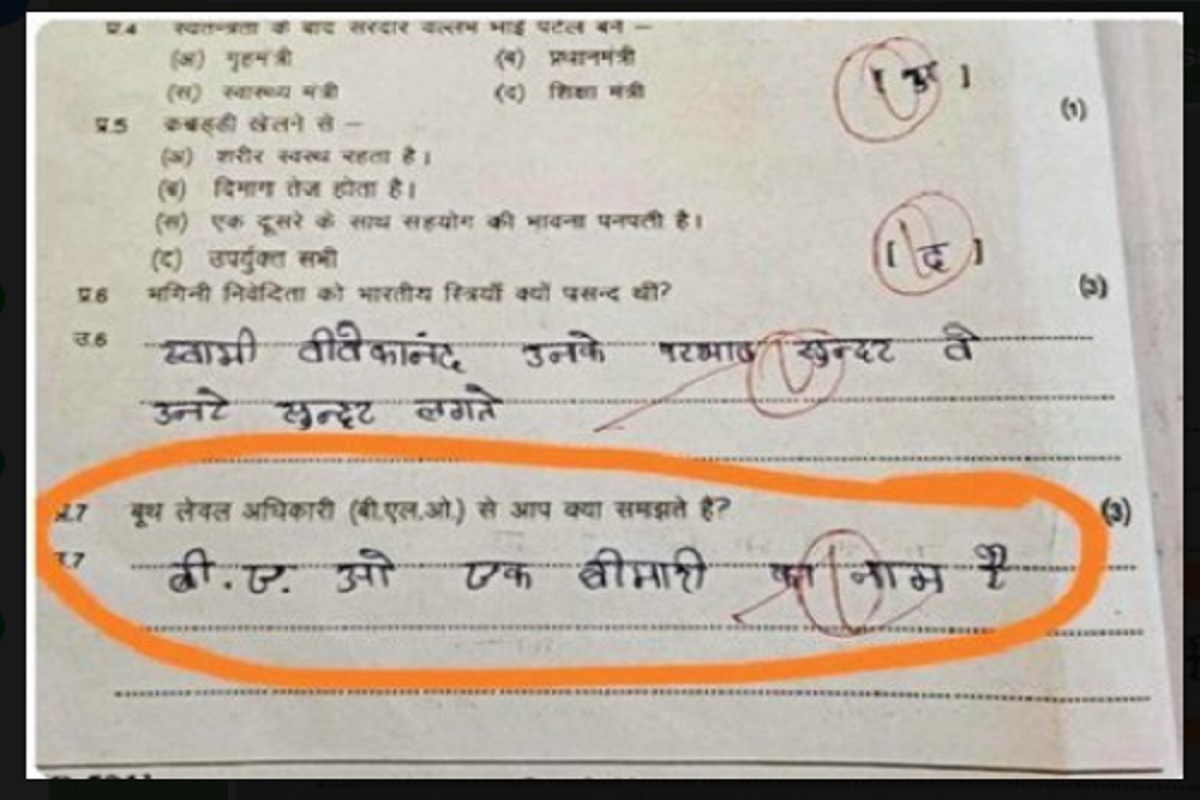 प्र.4 स्वतन्त्रता के बाद सरदार वल्लभ भाई पटेल बने –
(अ) गृहमंत्री (ब) प्रधानमंत्री
(स) स्वास्थ्य मंत्री (द) शिक्षा मंत्री [ अ ]
प्र.5 कबड्डी खेलने से – (1)
(अ) शरीर स्वस्थ रहता है।
(ब) दिमाग तेज होता है।
(स) एक दूसरे के साथ सहयोग की भावना पनपती है।
(द) उपर्युक्त सभी [ द ]
प्र.6 भगिनी निवेदिता को भारतीय स्त्रियाँ क्यों पसन्द थीं? (3)
उ.6 स्वामी वीवेकानंद उनके सुन्दर वे
उनटे सुन्दर लगते
प्र.7 बूथ लेवल अधिकारी (बी.एल.ओ.) से आप क्या समझते है? (3)
उ.7 बी.ए. ओ एक बीमारी का नाम है